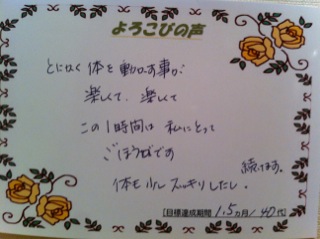 よろこびの声
とにかく体を動かす事が
楽しくて、楽しくて
この1時間は私にとって
ごほうびです
続けます。
体も少しスッキリしたし、
[目標達成期間 1.5ヵ月/40代]